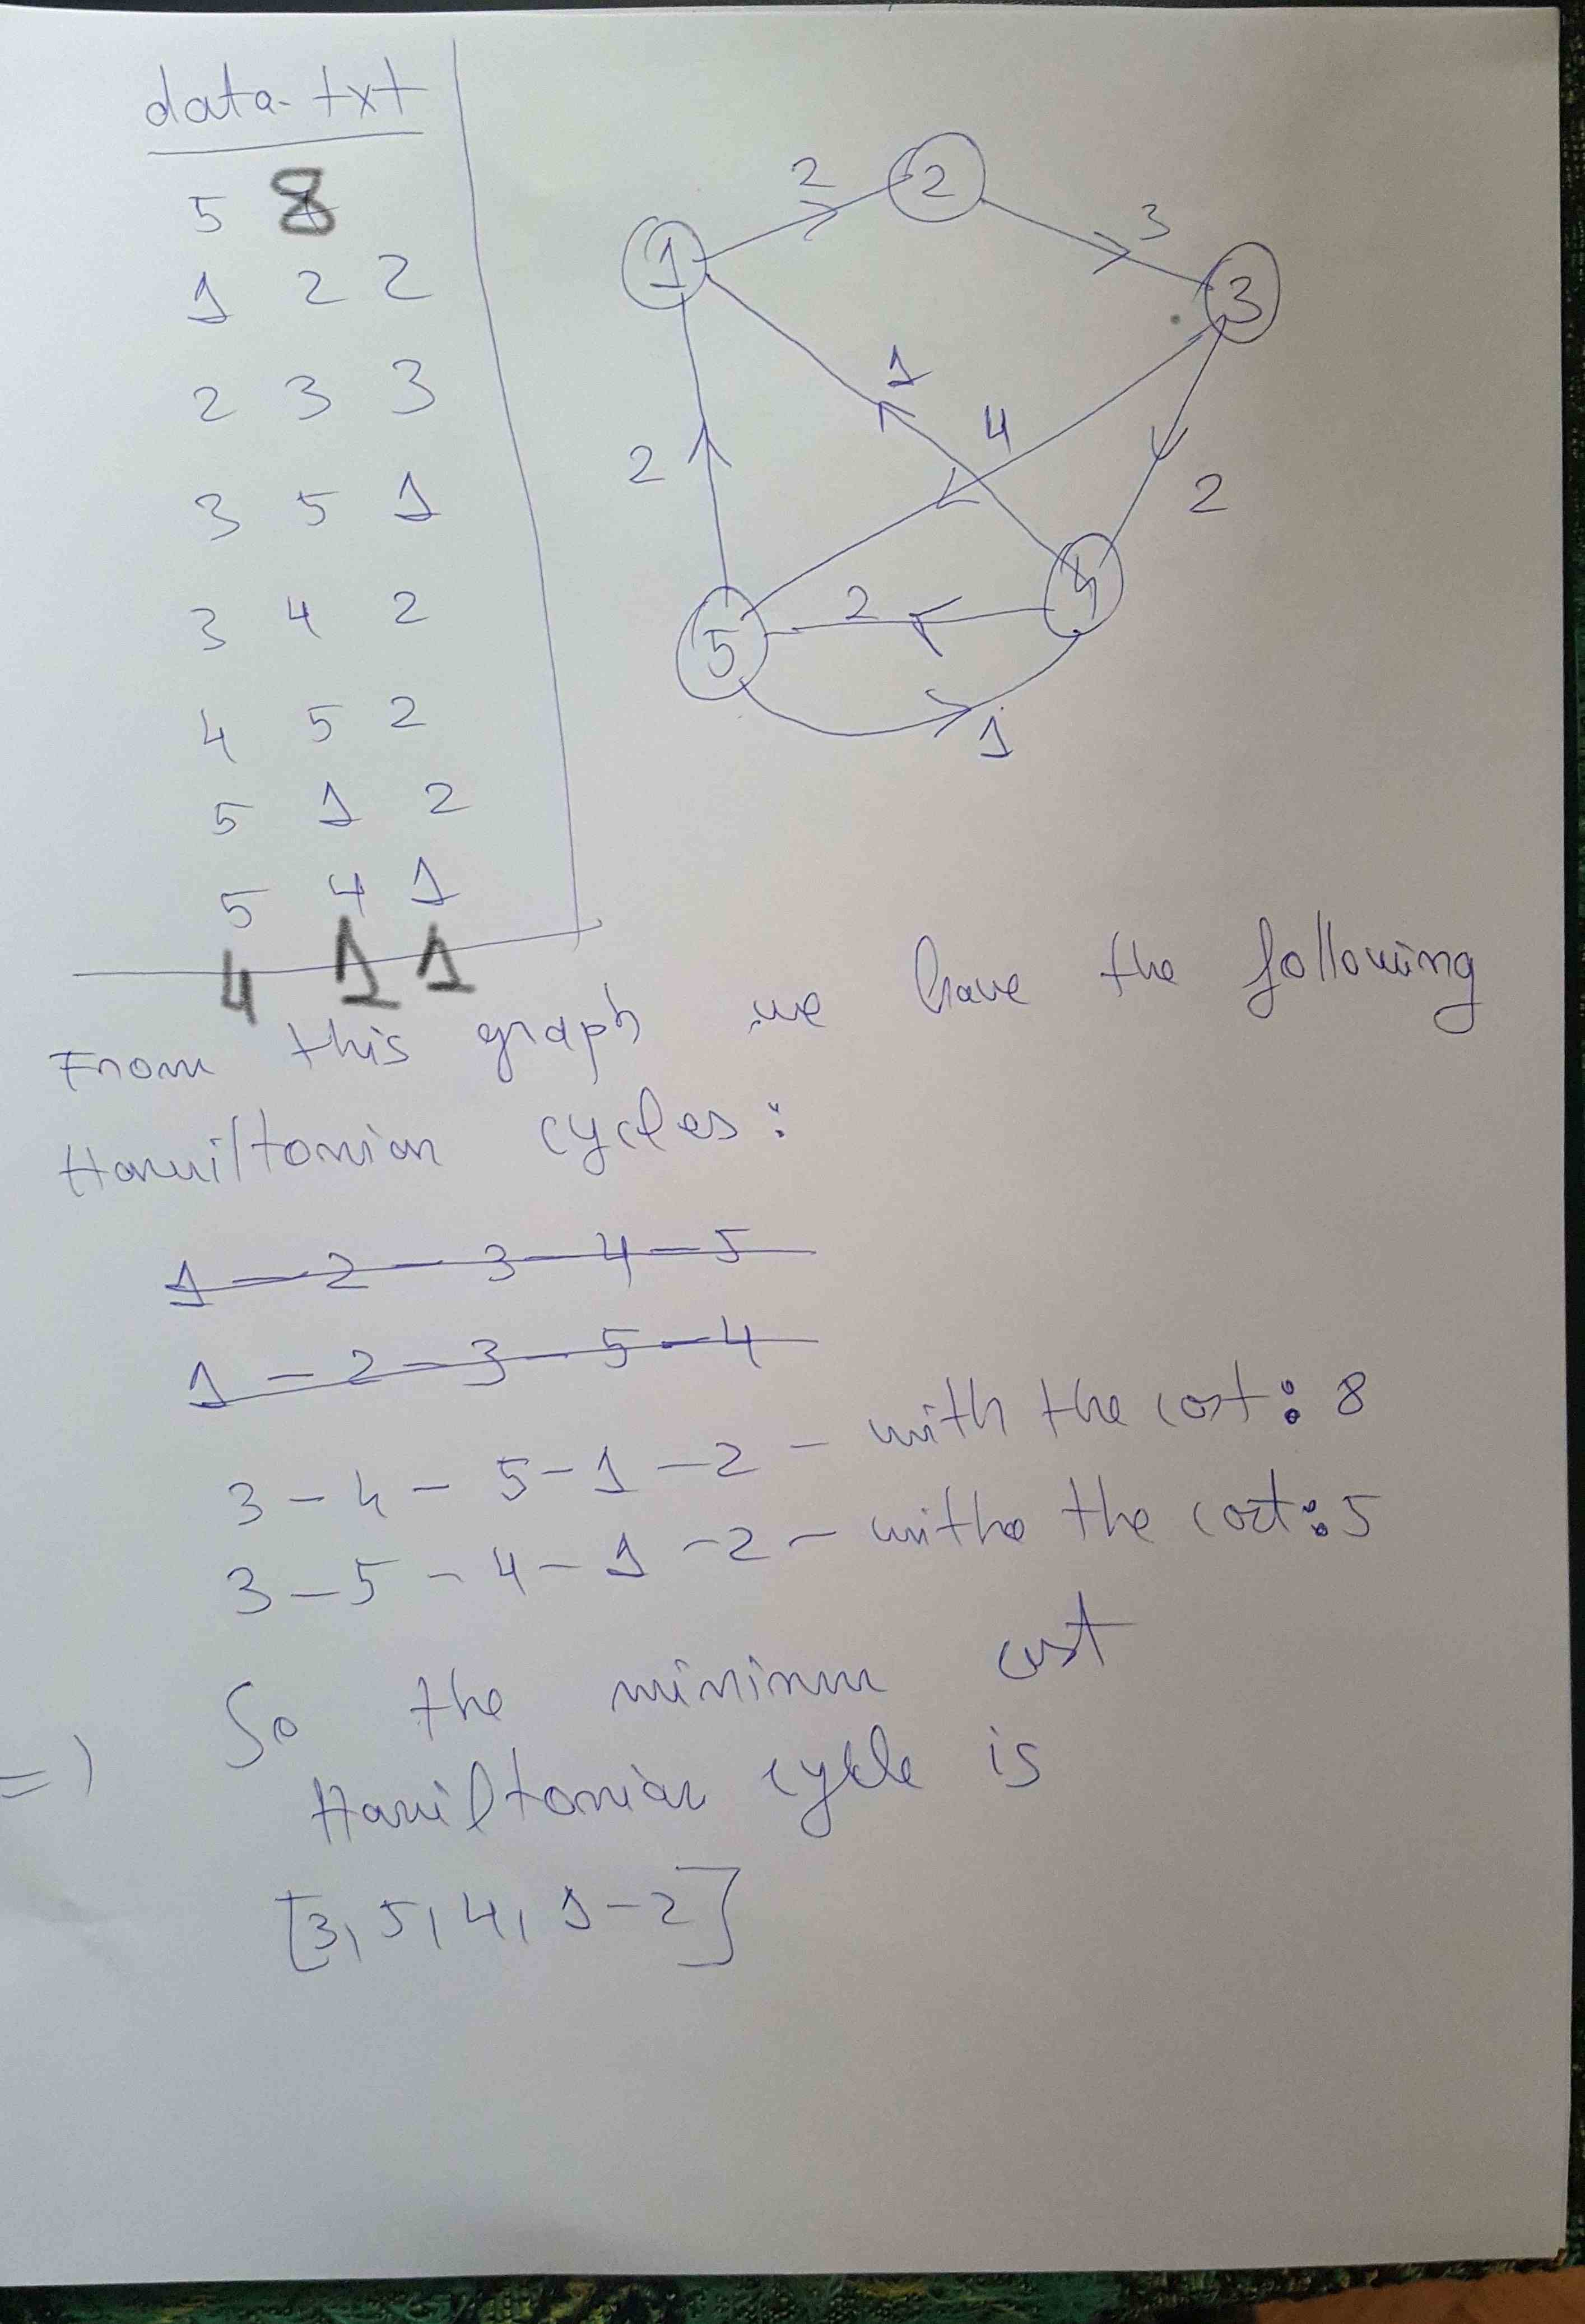 data.txt
5 8
1 2 2
2 3 3
3 5 1
3 4 2
4 5 2
5 1 2
5 4 1
4 1 1
1
2
3
4
5
2
3
1
4
2
2
2
1
From this graph we have the following
Hamiltonian cycles:
1 - 2 - 3 - 4 - 5
1 - 2 - 3 - 5 - 4
3 - 4 - 5 - 1 - 2 - with the cost: 8
3 - 5 - 4 - 1 - 2 - withe the cost: 5
=) So the minimum cost
Hamiltonian cycle is
[3, 5, 4, 1-2]